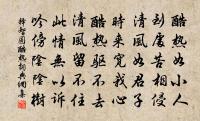 酷熱如小人
刻虐苦相侵
清風如君子
時來寬我心
酷熱驅不去
清風留不住
此情無以訴
吟傍陰陰樹
釋智圓酷熱詞